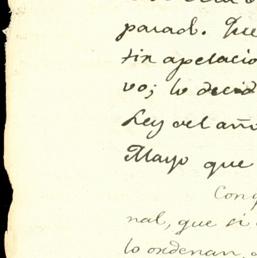 parado. Que
sin apelacio
vo; lo decid
Ley del año
Mayo que
Con q
nal, que si
lo ordenan,